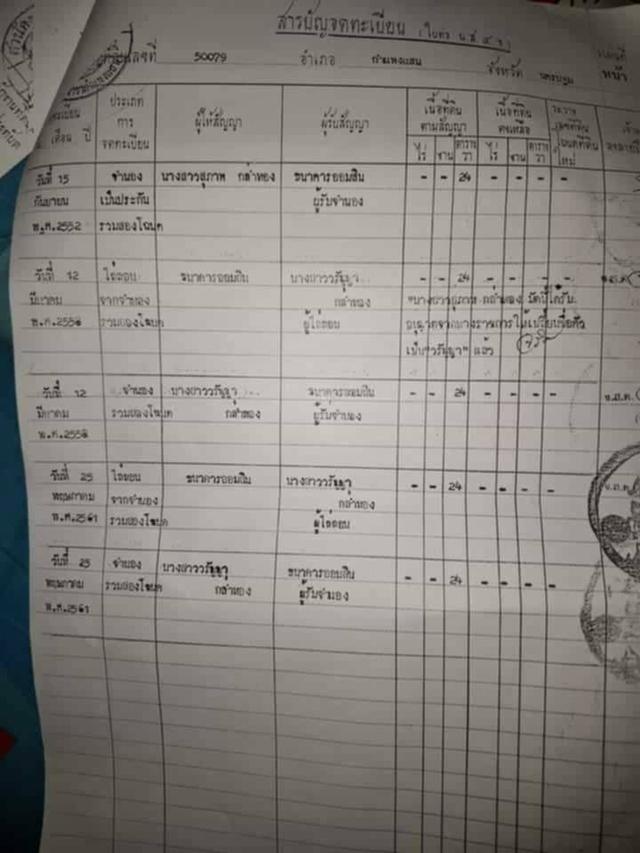 สารบัญจดทะเบียน (ใบต่อ น.ส.๔ จ.)
เลขที่ 50079 อำเภอ กำแพงแสน จังหวัด นครปฐม หน้า
ทะเบียน ประเภท ผู้ให้สัญญา ผู้รับสัญญา เนื้อที่ดิน เนื้อที่ดิน ระวาง
เดือน ปี การ ตามสัญญา คงเหลือ
จดทะเบียน ไร่ งาน ตาราง วา ไร่ งาน ตาราง วา ใหม่
วันที่ 15 จำนอง นางสาวสุภาพ กล่ำทอง ธนาคารออมสิน - - 24 - - - -
กันยายน เป็นประกัน ผู้รับจำนอง
พ.ศ.2552 รวมสองโฉนด
วันที่ 12 ไถ่ถอน ธนาคารออมสิน นางสาววรัญญา - - 24 - - - -
มีนาคม จากจำนอง กล่ำทอง "นางสาวสุภาพ กล่ำทอง" บัดนี้ได้รับ
พ.ศ.2558 รวมสองโฉนด ผู้ไถ่ถอน อนุญาตจากนางราชการให้เปลี่ยนชื่อตัว
เป็น "วรัญญา" แล้ว
วันที่ 12 จำนอง นางสาววรัญญา ธนาคารออมสิน - - 24 - - - -
มีนาคม รวมสองโฉนด กล่ำทอง ผู้รับจำนอง
พ.ศ.2558
วันที่ 25 ไถ่ถอน ธนาคารออมสิน นางสาววรัญญา - - 24 - - - -
พฤษภาคม จากจำนอง กล่ำทอง
พ.ศ.2561 รวมสองโฉนด ผู้ไถ่ถอน
วันที่ 25 จำนอง นางสาววรัญญา ธนาคารออมสิน - - 24 - - - -
พฤษภาคม รวมสองโฉนด กล่ำทอง ผู้รับจำนอง
พ.ศ.2561